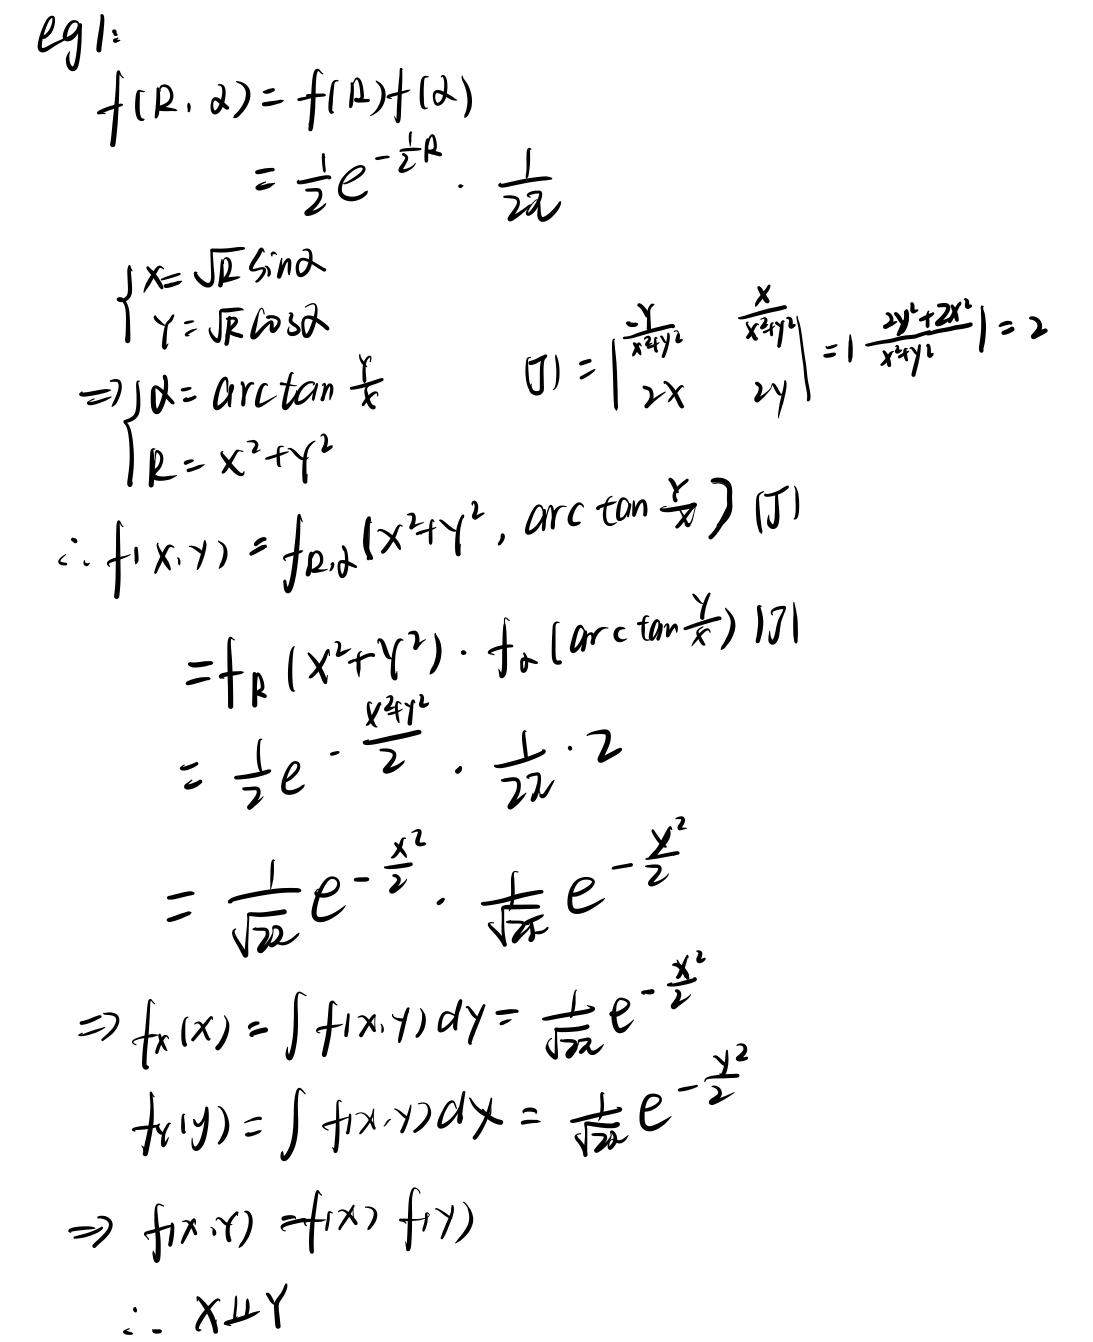 eg1:
f(R, α) = f(R)f(α)
= \frac{1}{2} e^{-\frac{1}{2}R} · \frac{1}{2π}
{ X = √R sinα
Y = √R cosα
⇒ { α = arctan \frac{Y}{X}
R = X² + Y²
|J| = | \frac{-Y}{X²+Y²} \frac{X}{X²+Y²} ; 2X 2Y | = | \frac{2Y²+2X²}{X²+Y²} | = 2
∴ f(X, Y) = f_{R,α}(X²+Y², arctan \frac{Y}{X}) |J|
= f_R (X²+Y²) · f_α (arctan \frac{Y}{X}) |J|
= \frac{1}{2} e^{-\frac{X²+Y²}{2}} · \frac{1}{2π} · 2
= \frac{1}{√2π} e^{-\frac{X²}{2}} · \frac{1}{√2π} e^{-\frac{Y²}{2}}
⇒ f_X(X) = ∫ f(X, Y) dy = \frac{1}{√2π} e^{-\frac{X²}{2}}
f_Y(y) = ∫ f(X, Y) dx = \frac{1}{√2π} e^{-\frac{y²}{2}}
⇒ f(X, Y) = f(X) f(Y)
∴ X ⫫ Y